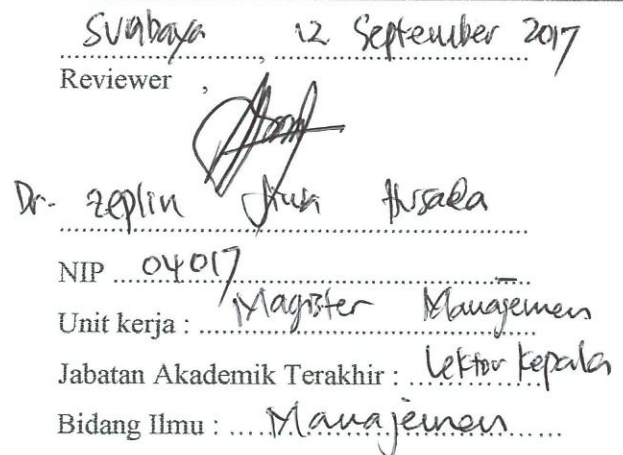 Surabaya, 12 September 2017
Reviewer ,
Dr. Zeplin Jiwa Husada
NIP 04017
Unit kerja : Magister Manajemen
Jabatan Akademik Terakhir : Lektor Kepala
Bidang Ilmu : Manajemen